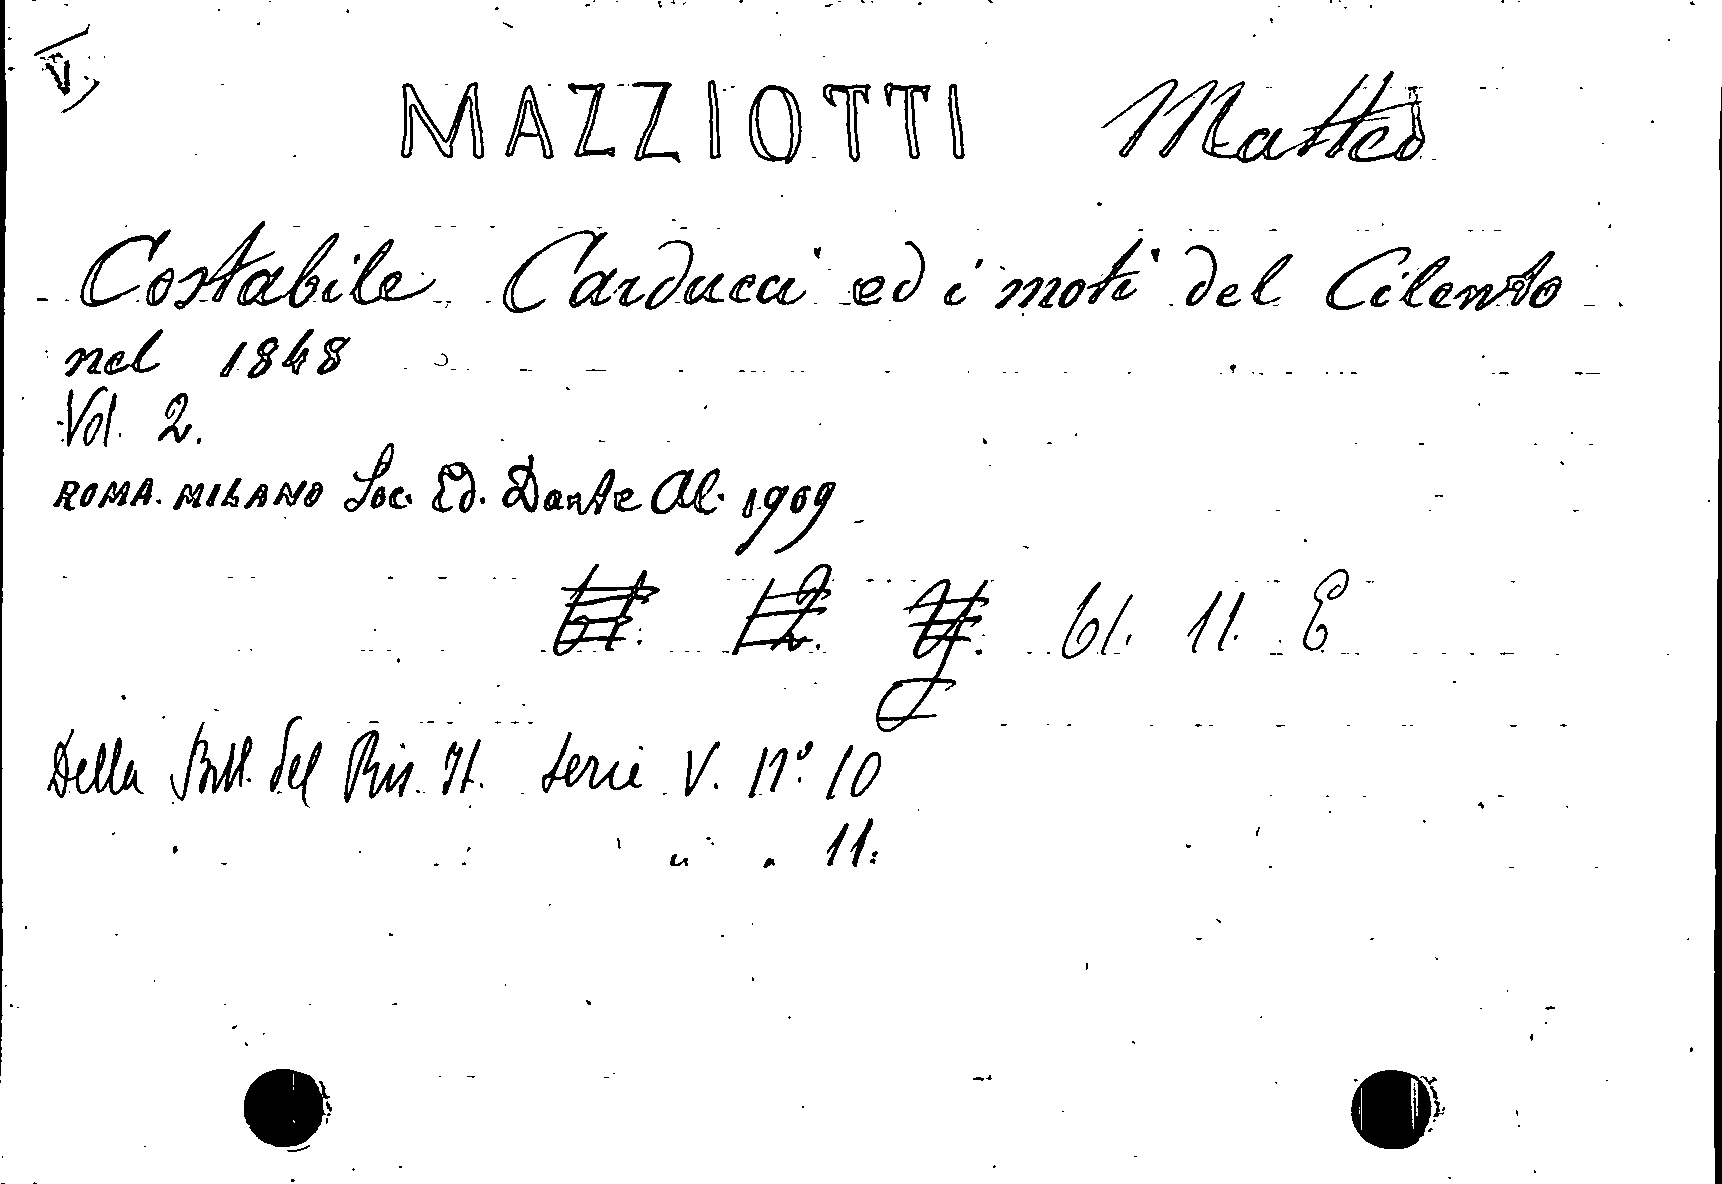 V,
MAZZIOTTI Matteo
Costabile Carducci ed i moti del Cilento
nel 1848
Vol. 2.
ROMA. MILANO Soc. Ed. Dante Al. 1909
61. 12. 61. 11. E
Della Bibl. del Ris. It. Serie V. N.° 10
" " 11.